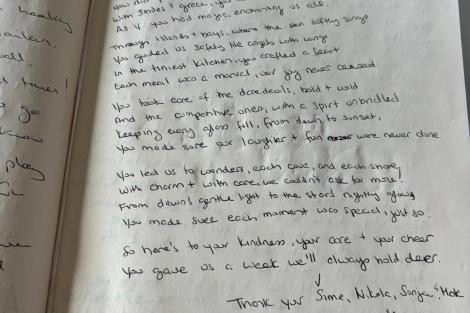 healing
How did
with smiles + grace, you
As if you had magic, enchanting us all.
Through islands + bays, where the sea softly sings
You guided us safely like angels with wings
In the tiniest kitchen, you crafted a feast
Each meal was a marvel, our joy never ceased.
You took care of the daredevils, bold + wild
And the competitive ones, with a spirit unbridled
Keeping every glass full, from dawn to sunset,
You made sure our laughter + fun were never done
You led us to wonders, each cove, and each shore
With charm + with care, we couldn't ask for more!
From dawn's gentle light to the stars nightly glow
You made sure each moment was special, just so.
So here's to your kindness, your care + your cheer
You gave us a week we'll always hold dear.
Thank you Sime, Nikola, Sonja
know
play